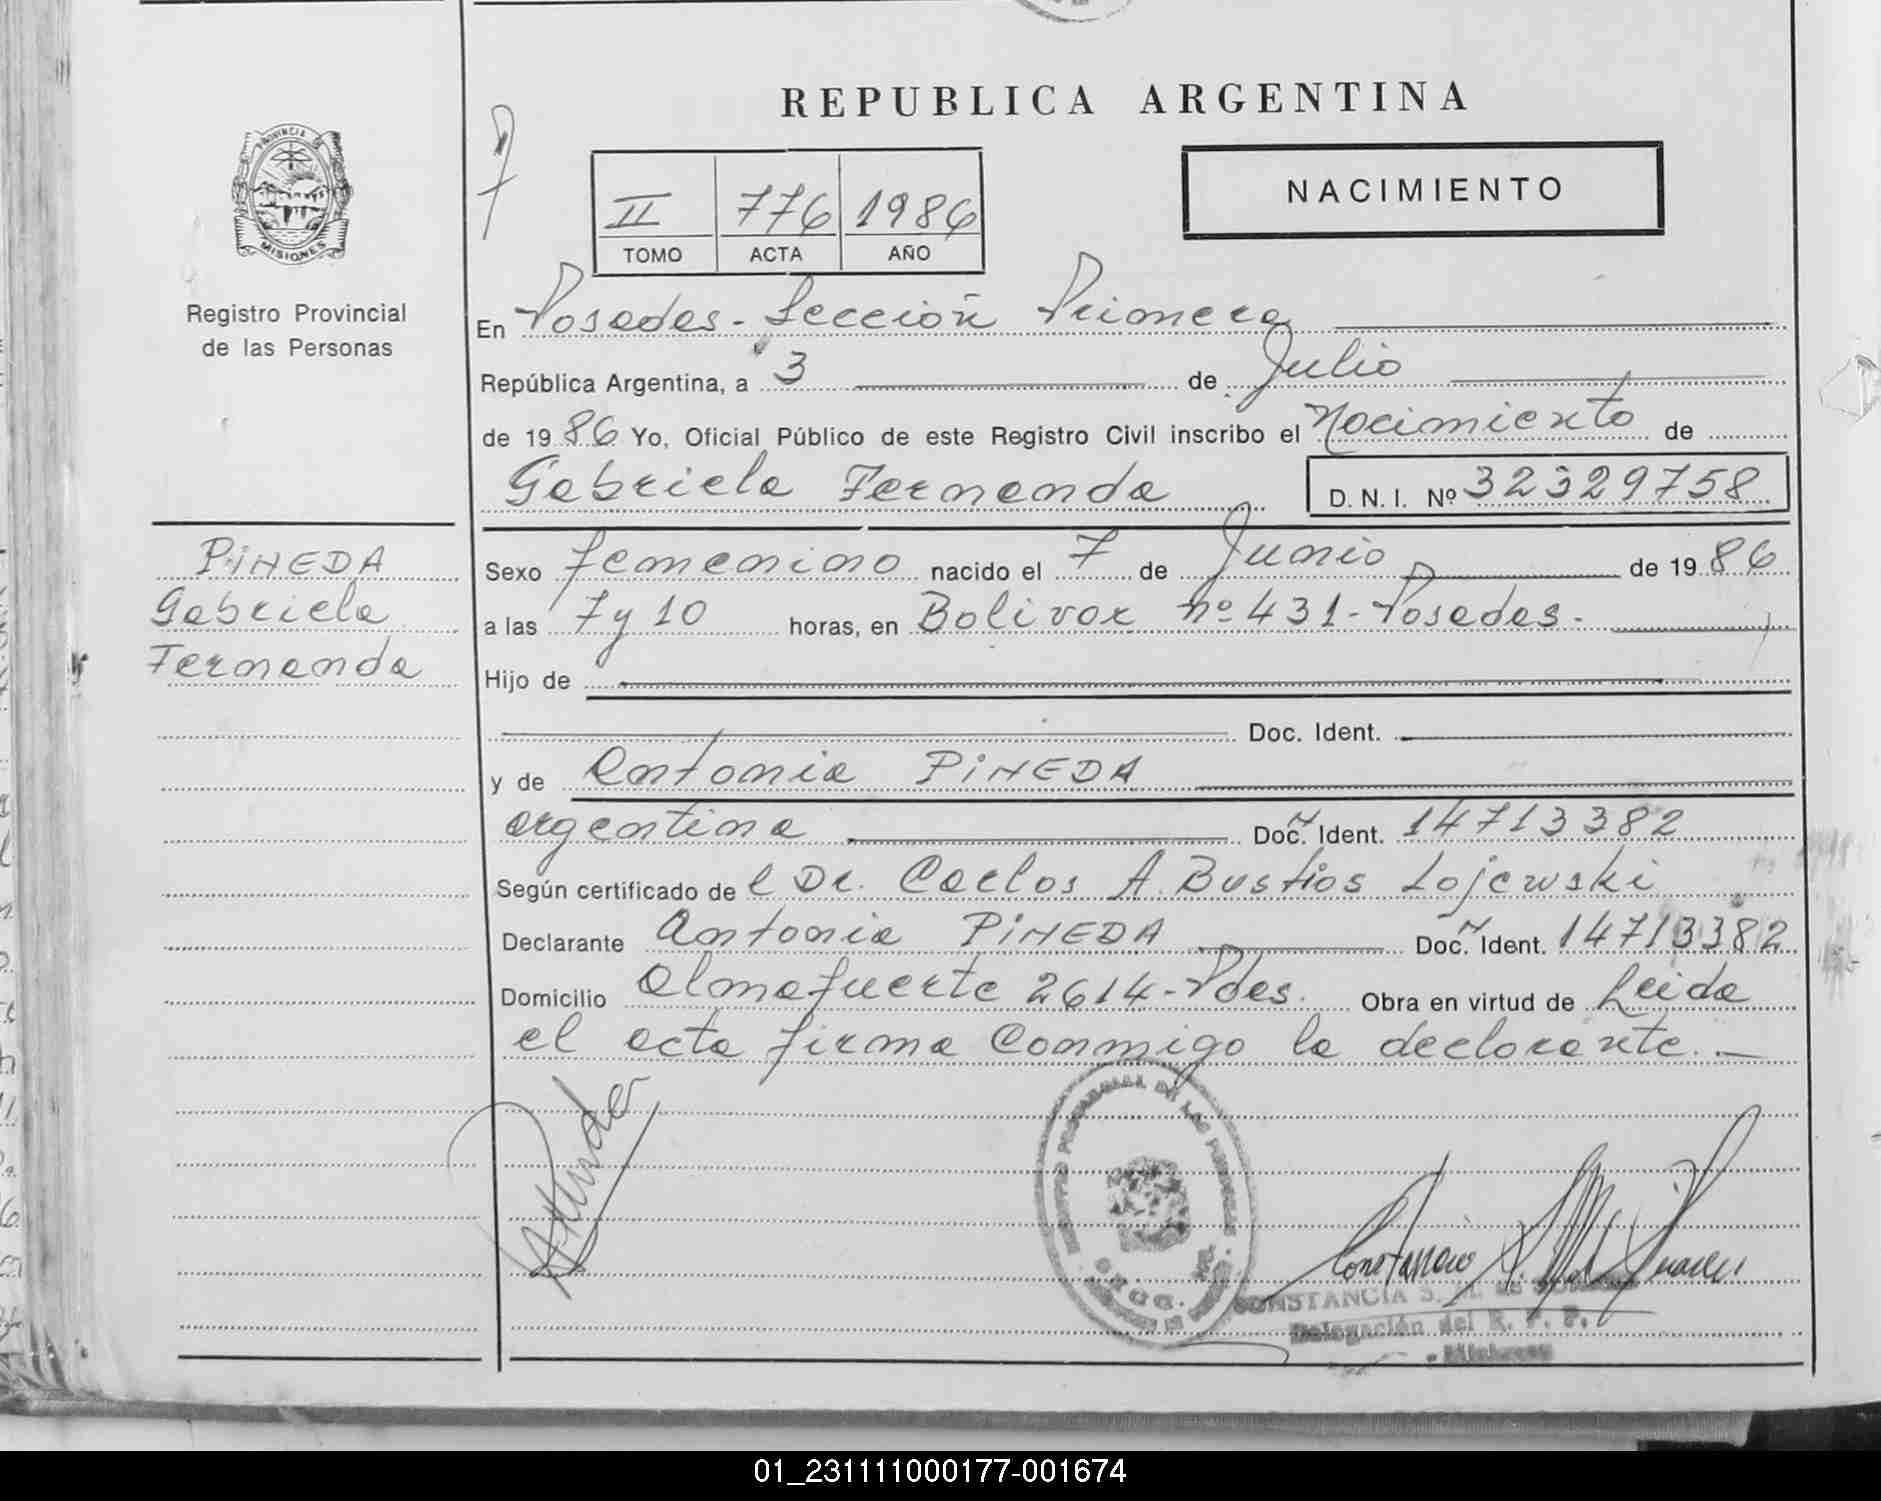 REPUBLICA ARGENTINA
PROVINCIA DE
MISIONES
Registro Provincial
de las Personas
II 776 1986
TOMO ACTA AÑO
NACIMIENTO
En Posadas - Sección Primera
República Argentina, a 3 de Julio
de 1986 Yo, Oficial Público de este Registro Civil inscribo el Nacimiento de
Gabriela Fernanda D. N. I. Nº 32329758
PiNEDA
Gabriela
Fernanda
Sexo femenino nacido el 7 de Junio de 1986
a las 7 y 10 horas, en Bolivar nº 431 - Posadas.
Hijo de
Doc. Ident.
y de Antonia PiNEDA
argentina Doc. Ident. 14713382
Según certificado de l Dr. Carlos A. Bustios Lojewski
Declarante Antonia PiNEDA Doc. Ident. 14713382
Domicilio Almafuerte 2614 - Pdas. Obra en virtud de Leida
el acta firma Conmigo la declarante. -
REGISTRO PROVINCIAL DE LAS PERSONAS
CONSTANCIA S.
Delegación del R. P. P.
01_231111000177-001674